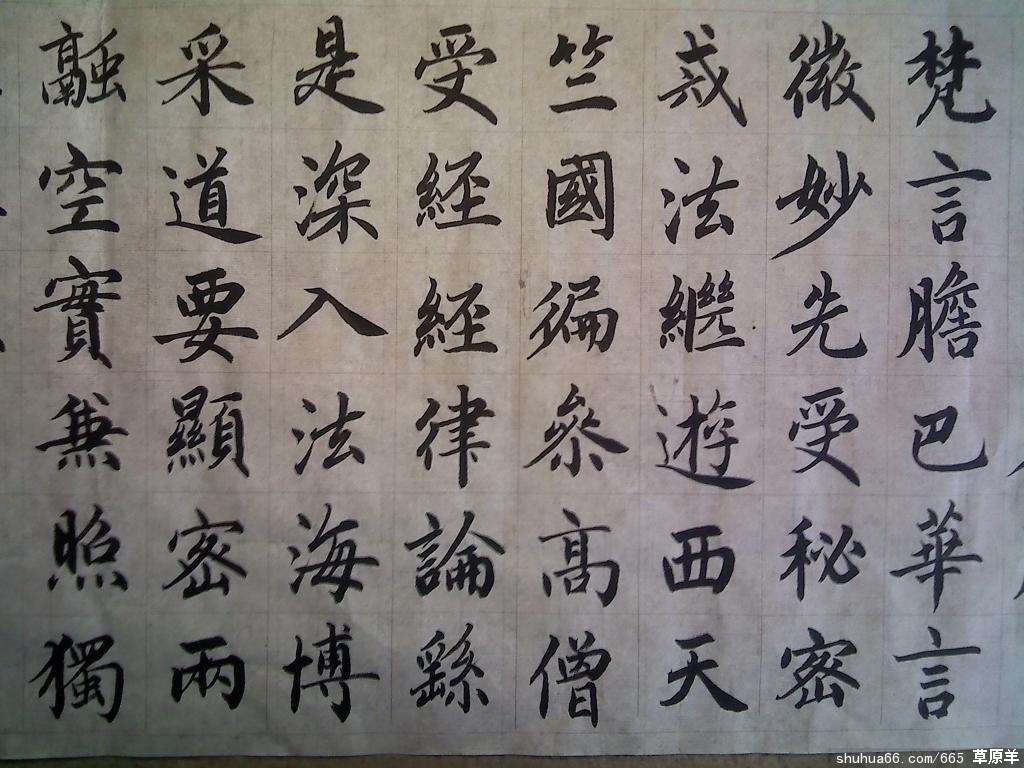 梵言膽巴華言
微妙先受秘密
戒法繼遊西天
竺國徧參高僧
受經經律論繇
是深入法海博
采道要顯密兩
融空實兼照獨
shuhua66.com/665 草原羊